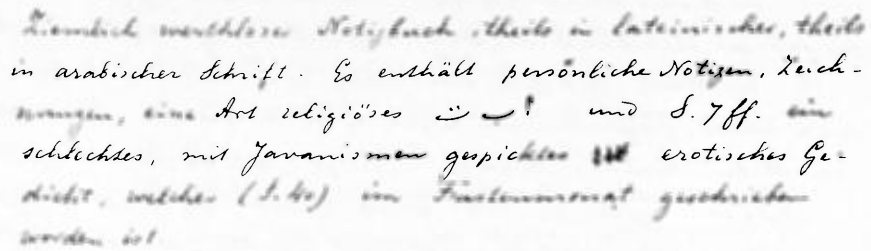 Ziemlich werthloses Notizbuch, theils in lateinischer, theils
in arabischer Schrift. Es enthält persönliche Notizen, Zeich-
nungen, eine Art religiöses und S. 7 ff. ein
schlechtes, mit Javanismen gespicktes erotisches Ge-
dicht, welches (S. 40) im Fastenmonat geschrieben
worden ist